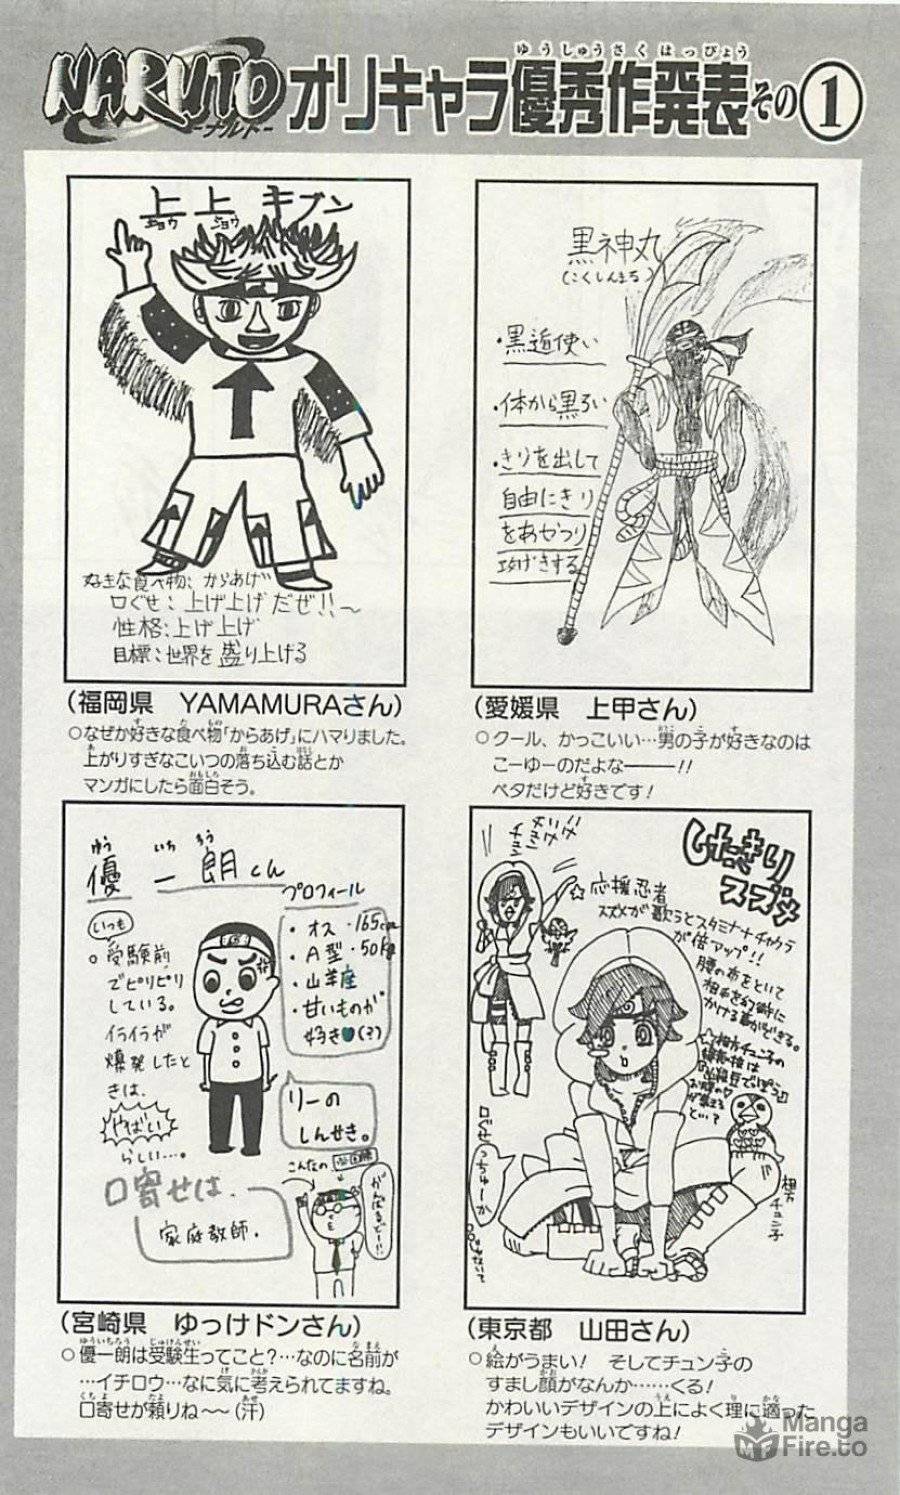 ゆうしゅうさくはっぴょう
NARUTO オリキャラ優秀作発表その①
-ナルト-
上上 キブン
ジョウ ジョウ
好きな食べ物:からあげ
口ぐせ:上げ上げだぜ!!〜
性格:上げ上げ
目標:世界を盛り上げる
(福岡県 YAMAMURAさん)
○なぜか好きな食べ物「からあげ」にハマりました。
上がりすぎなこいつの落ち込む話とか
マンガにしたら面白そう。
黒神丸
(こくしんまる)
・黒遁使い
・体から黒い
きりを出して
自由にきり
をあやつり
攻げきする
(愛媛県 上甲さん)
○クール、かっこいい…男の子が好きなのは
こーゆーのだよな———!!
ベタだけど好きです!
ゆう いち ろう
優一朗くん
いつも
○受験前
でピリピリ
している。
イライラが
爆発したと
きは、
やばい
らしい…。
プロフィール
・オス ・165cm
・A型 ・50kg
・山羊座
・甘いものが
好き♥(?)
リーの
しんせき。
口寄せは、
家庭教師。
こんなの
がんばるぞー!!
(宮崎県 ゆっけドンさん)
ゆういちろう じゅけんせい なまえ
○優一朗は受験生ってこと?…なのに名前が
…イチロウ…なに気に考えられてますね。
口寄せが頼りね〜〜(汗)
したきり
スズメ
☆応援忍者
スズメが歌うとスタミナ+チャクラ
が倍アップ!!
腰の布をといて
相手を幻術に
かける事ができる。
相方
チュン子
(東京都 山田さん)
○絵がうまい! そしてチュン子の
すまし顔がなんか……くる!
かわいいデザインの上によく理に適った
デザインもいいですね!
Manga
Fire.to